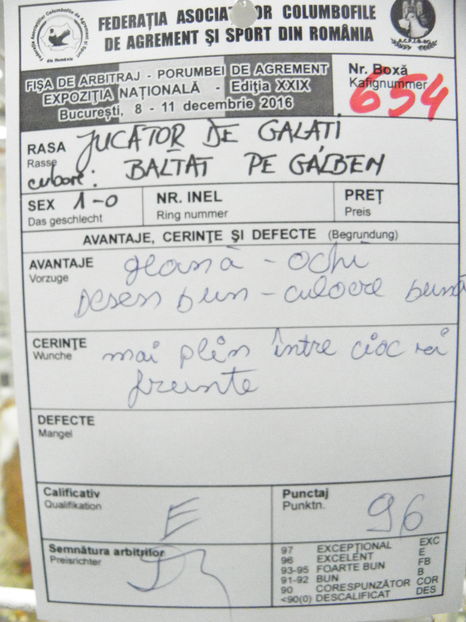 FEDERAȚIA ASOCIAȚIILOR COLUMBOFILE
DE AGREMENT ȘI SPORT DIN ROMÂNIA
FIȘA DE ARBITRAJ - PORUMBEI DE AGREMENT
EXPOZIȚIA NAȚIONALĂ - Ediția XXIX
București, 8 - 11 decembrie 2016
Nr. Boxă
Kafignummer
654
RASA JUCĂTOR DE GALATI
Rasse
culoare: BĂLTAT PE GALBEN
SEX 1-0
Das geschlecht
NR. INEL
Ring nummer
PREȚ
Preis
AVANTAJE, CERINȚE ȘI DEFECTE (Begrundung)
AVANTAJE geană - ochi
Vorzuge
Desen bun - culoare bună
CERINȚE mai plin între cioc și
Wunche
frunte
DEFECTE
Mangel
Calificativ
Qualifikation
E
Punctaj
Punktn.
96
Semnătura arbitrilor
Preisrichter
97 EXCEPȚIONAL EXC
96 EXCELENT E
93-95 FOARTE BUN FB
91-92 BUN B
90 CORESPUNZĂTOR COR
<90(0) DESCALIFICAT DES